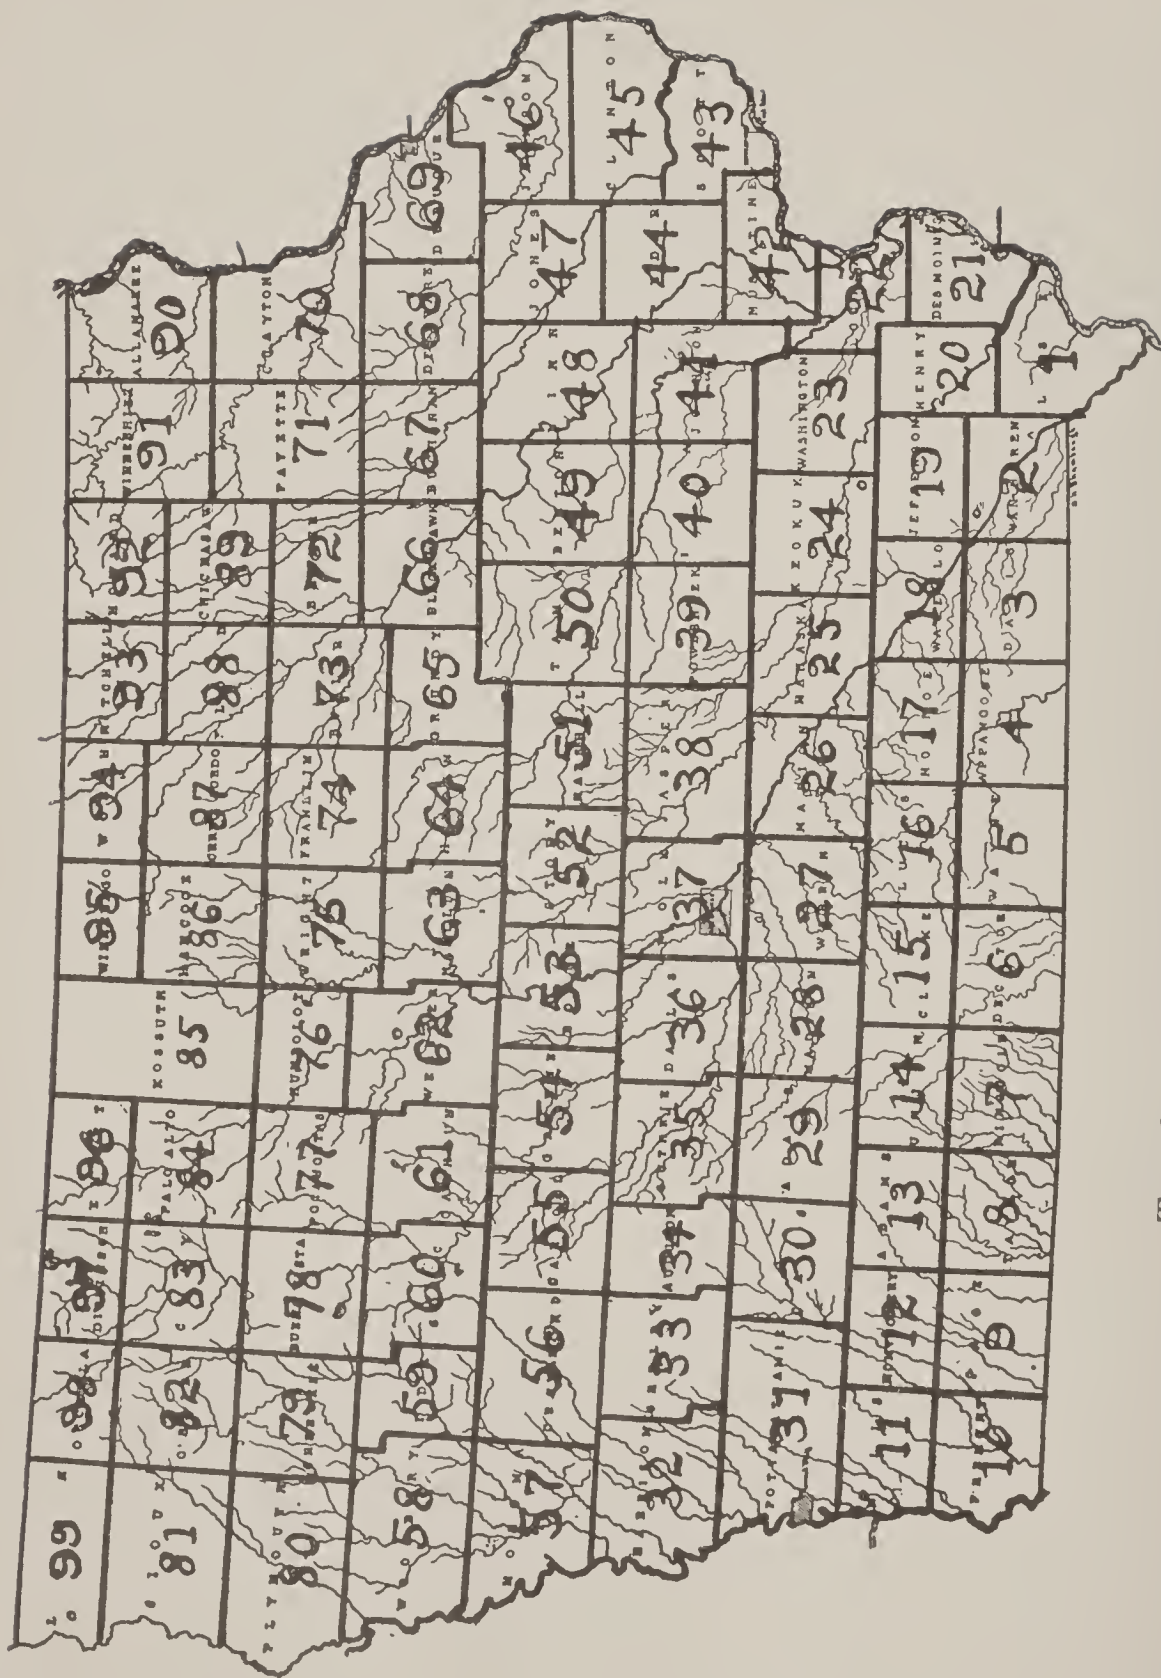 LYON 99
OSCEOLA 98
DICKINSON 97
EMMET 96
KOSSUTH 85
WINNEBAGO 95
WORTH 94
MITCHELL 93
HOWARD 92
WINNESHIEK 91
ALLAMAKEE 90
SIOUX 81
O'BRIEN 82
CLAY 83
PALO ALTO 84
HANCOCK 86
CERRO GORDO 87
FLOYD 88
CHICKASAW 89
PLYMOUTH 80
CHEROKEE 79
BUENA VISTA 78
POCAHONTAS 77
HUMBOLDT 76
WRIGHT 75
FRANKLIN 74
BUTLER 73
BREMER 72
FAYETTE 71
CLAYTON 70
WOODBURY 58
IDA 59
SAC 60
CALHOUN 61
WEBSTER 62
HAMILTON 63
HARDIN 64
GRUNDY 65
BLACKHAWK 66
BUCHANAN 67
DELAWARE 68
DUBUQUE 69
MONONA 57
CRAWFORD 56
CARROLL 55
GREENE 54
BOONE 53
STORY 52
MARSHALL 51
TAMA 50
BENTON 49
LINN 48
JONES 47
JACKSON 46
HARRISON 32
SHELBY 33
AUDUBON 34
GUTHRIE 35
DALLAS 36
POLK 37
JASPER 38
POWESHIEK 39
IOWA 40
JOHNSON 41
CEDAR 44
CLINTON 45
SCOTT 43
POTTAWATTAMIE 31
CASS 30
ADAIR 29
MADISON 28
WARREN 27
MARION 26
MAHASKA 25
KEOKUK 24
WASHINGTON 23
MUSCATINE 42
LOUISA 22
MILLS 11
MONTGOMERY 12
ADAMS 13
UNION 14
CLARKE 15
LUCAS 16
MONROE 17
WAPELLO 18
JEFFERSON 19
HENRY 20
DESMOINES 21
FREMONT 10
PAGE 9
TAYLOR 8
RINGGOLD 7
DECATUR 6
WAYNE 5
APPANOOSE 4
DAVIS 3
VAN BUREN 2
LEE 1